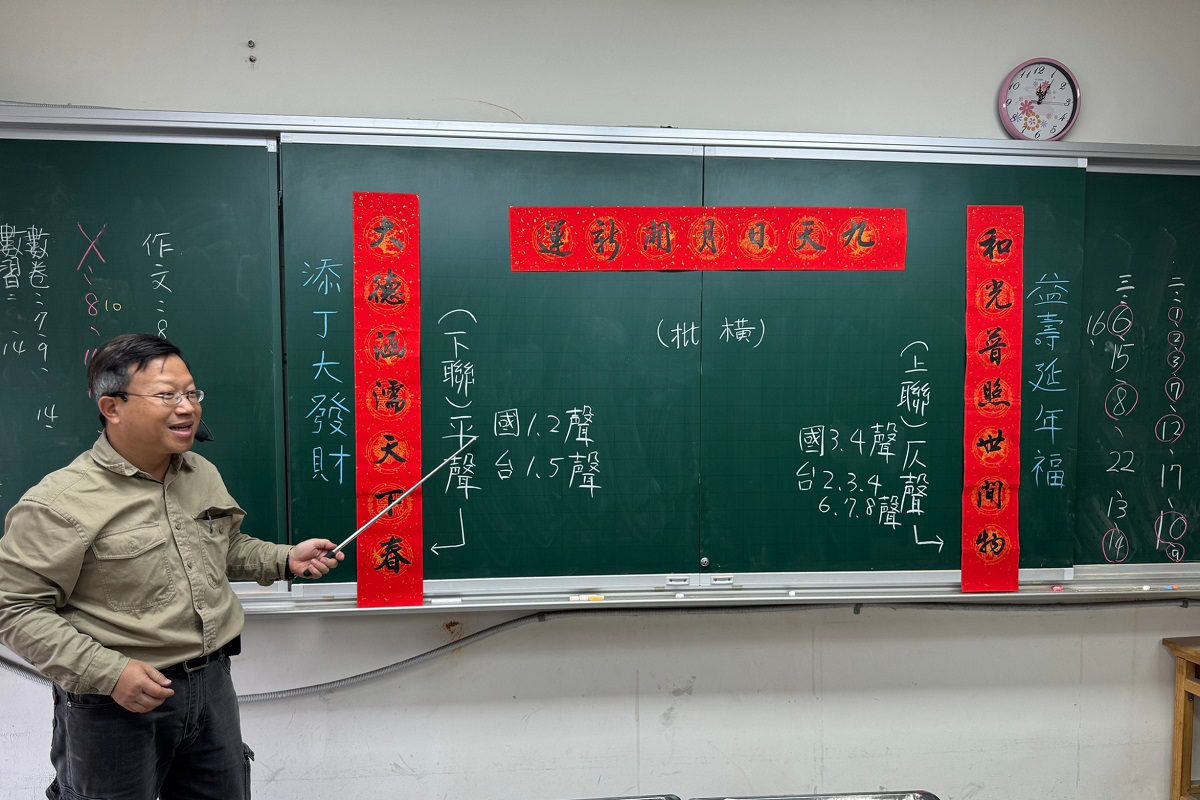 九天日月開新運
(橫批)
益壽延年福
和光普照世間物
(上聯)仄聲
國3.4聲
台2.3.4
6.7.8聲
國1.2聲
台1.5聲
(下聯)平聲
大德涵濡天下春
添丁大發財
二:①②③⑦、⑫、17、⑩⑨
三:⑥、15、⑧、22、13、⑭
16
作文:8
8、
10
數卷:7、9、
數習:
14
14
12 1 2 3 4 5 6 7 8 9 10 11